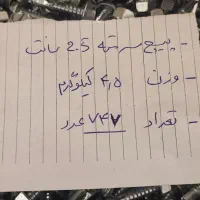 - پیچ سرمته 2.5 سانت
- وزن ۴٫۵ کیلوگرم
- تعداد ۷۴۷ عدد